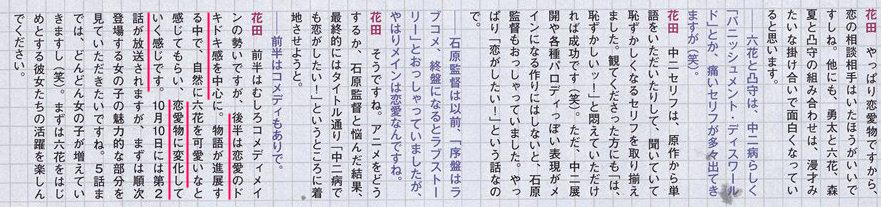 花田　やっぱり恋愛物ですから、
恋の相談相手はいたほうがいいで
すしね。他にも、勇太と六花、森
夏と凸守の組み合わせは、漫才み
たいな掛け合いで面白くなってい
ると思います。
――六花と凸守は、中二病らしく
「バニッシュメント・ディスワール
ド」とか、痛いセリフが多々出てき
ますが（笑）。
花田　中二セリフは、原作から単
語をいただいたりして、聞いていて
恥ずかしくなるセリフを取り揃え
ました。観てくださった方にも「は、
恥ずかしいッ！」と悶えていただけ
れば成功です（笑）。ただ、中二展
開や各種パロディっぽい表現がメ
インになる作りにはしないと、石原
監督もおっしゃっていました。やっ
ぱり「恋がしたい！」という話なの
で。
――石原監督は以前、「序盤はラ
ブコメ、終盤になるとラブストー
リー」とおっしゃっていましたが、
やはりメインは恋愛なんですね。
花田　そうですね。アニメをどう
するか、石原監督と悩んだ結果、
最終的にはタイトル通り「中二病で
も恋がしたい！」というところに着
地させようと。
――前半はコメディもありで。
花田　前半はむしろコメディメイ
ンの勢いですが、後半は恋愛のド
キドキ感を中心に。物語が進展す
る中で、自然に六花を可愛いなと
感じてもらい、恋愛物に変化して
いく感じです。10月10日には第２
話が放送されますが、まずは順次
登場する女の子の魅力的な部分を
見ていただきたいですね。５話ま
では、どんどん女の子が増えてい
きますし（笑）。まずは六花をはじ
めとする彼女たちの活躍を楽しん
でください。